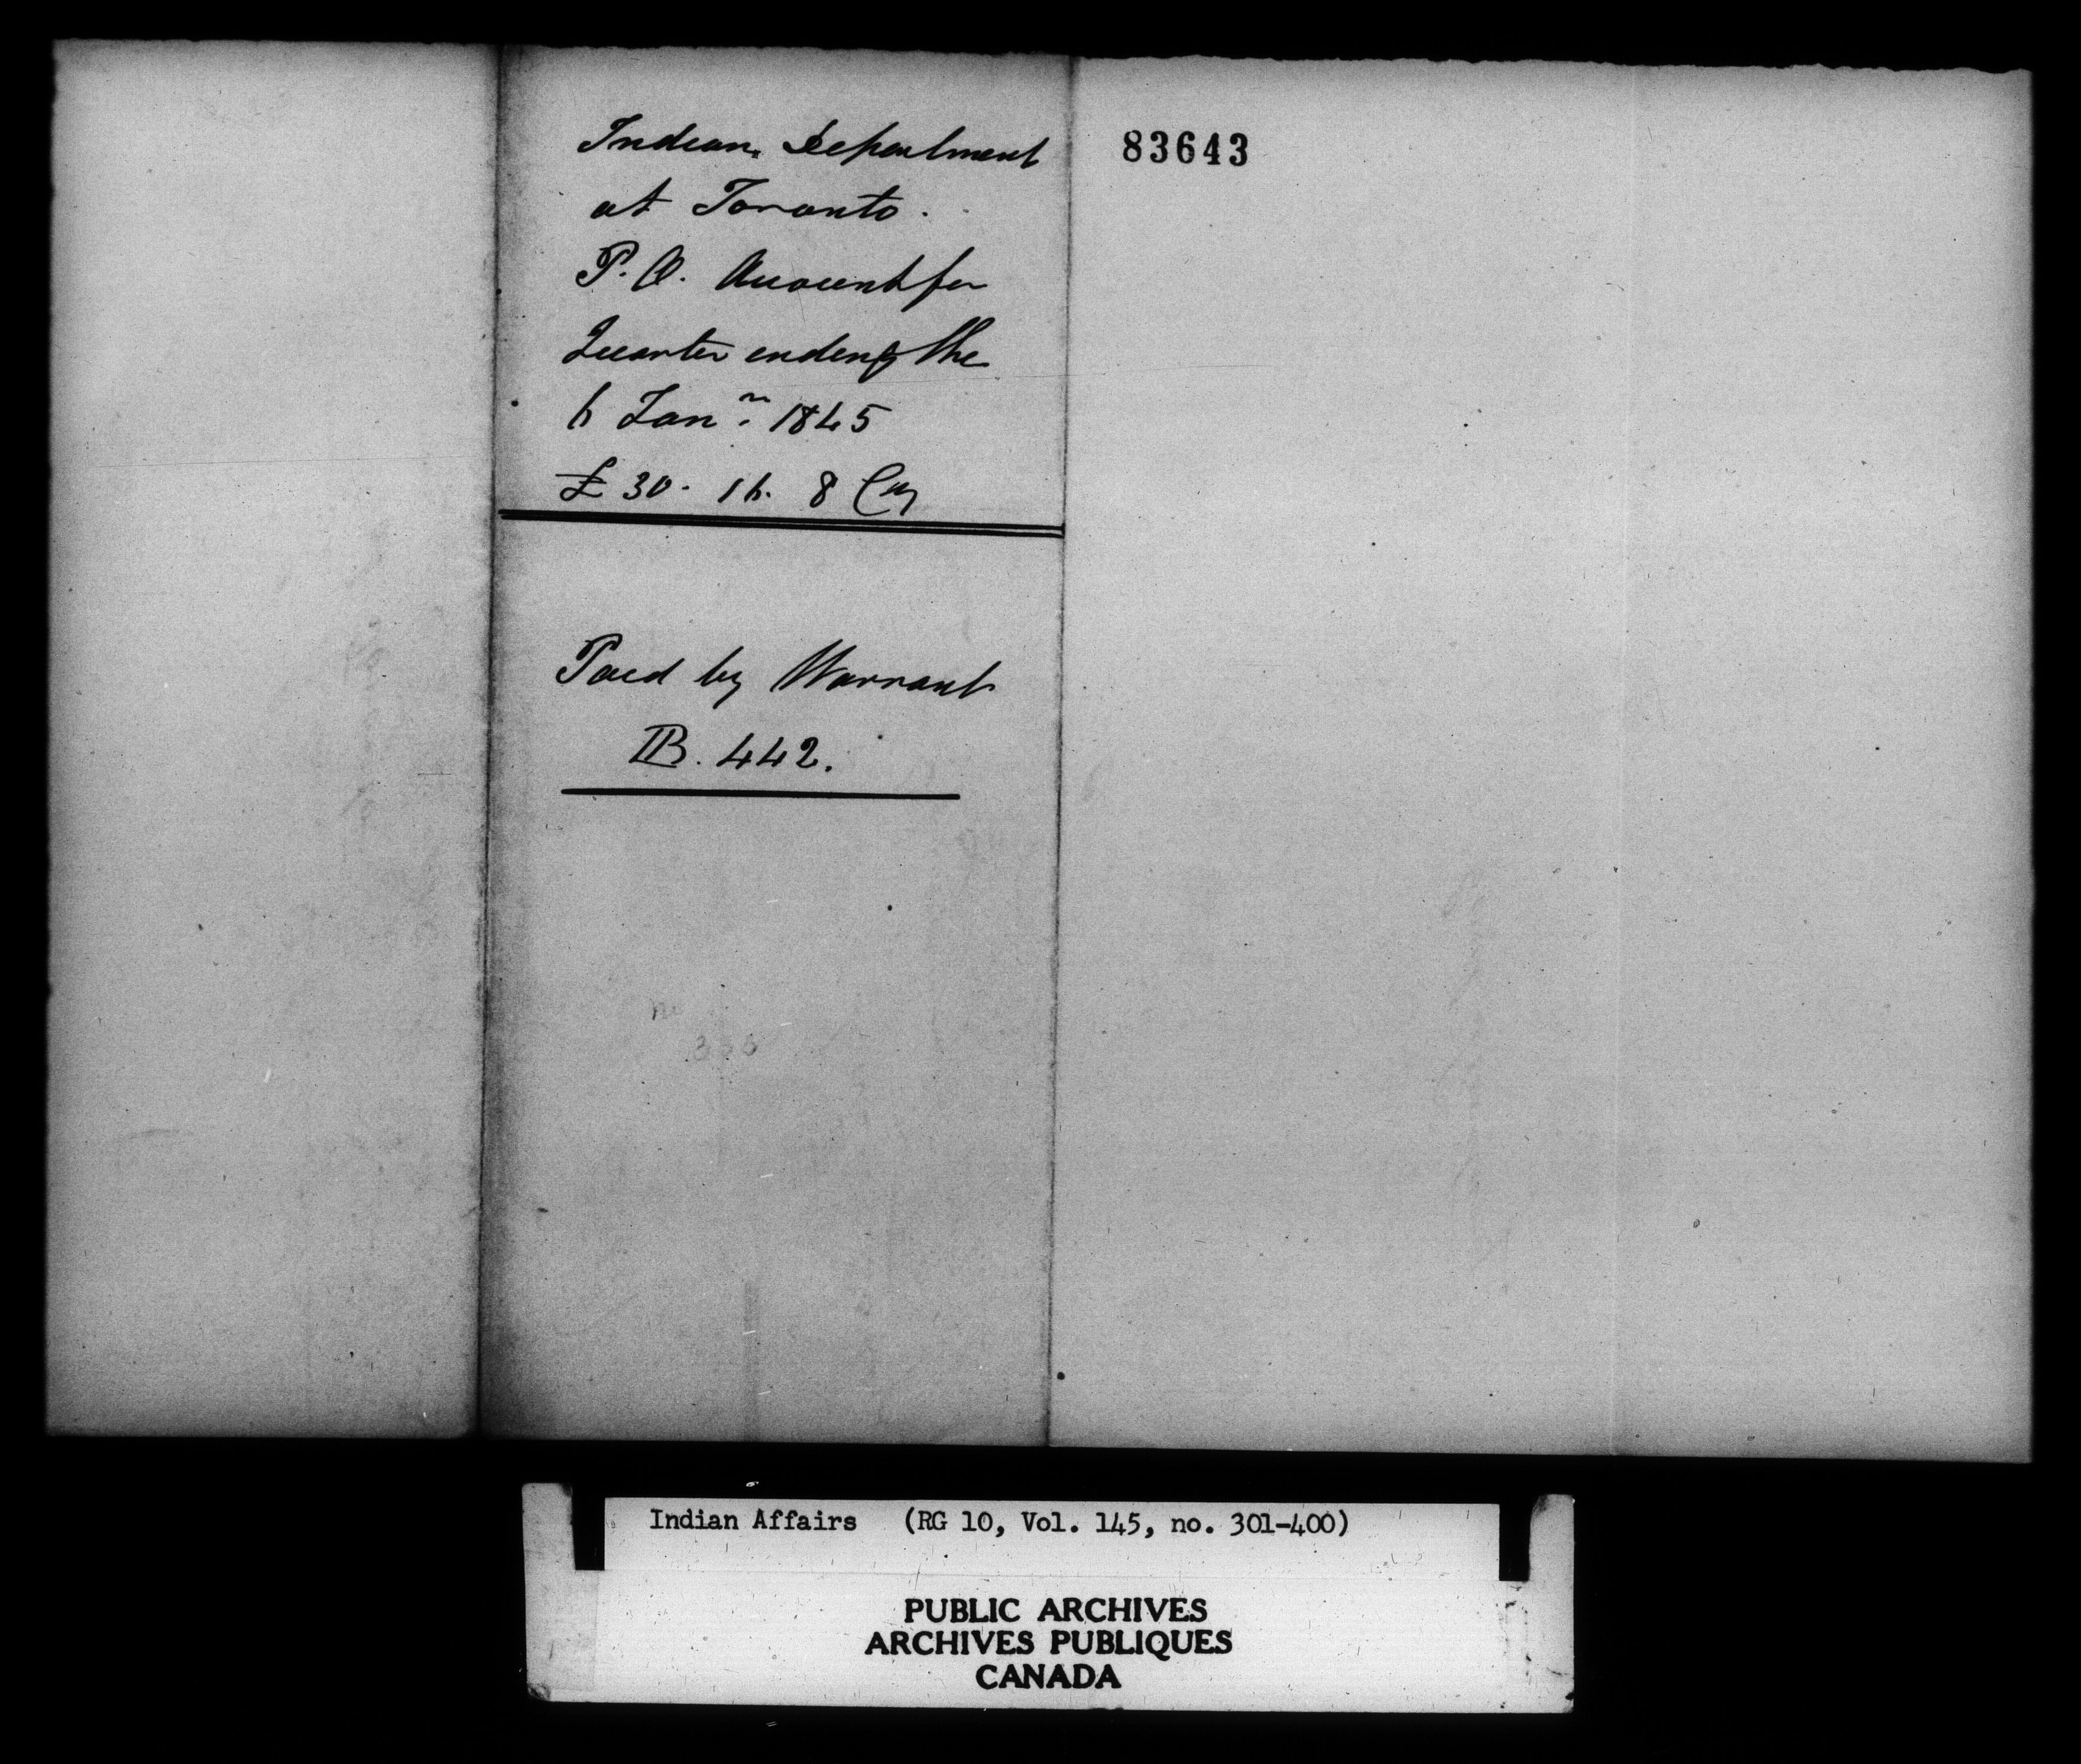 Indian Department
at Toronto.
P. O. Account for
Quarter ending the
5 Jany. 1845
£ 30. 15. 8 Cy
Paid by Warrant
B. 442.
83643
Indian Affairs (RG 10, Vol. 145, no. 301-400)
PUBLIC ARCHIVES
ARCHIVES PUBLIQUES
CANADA